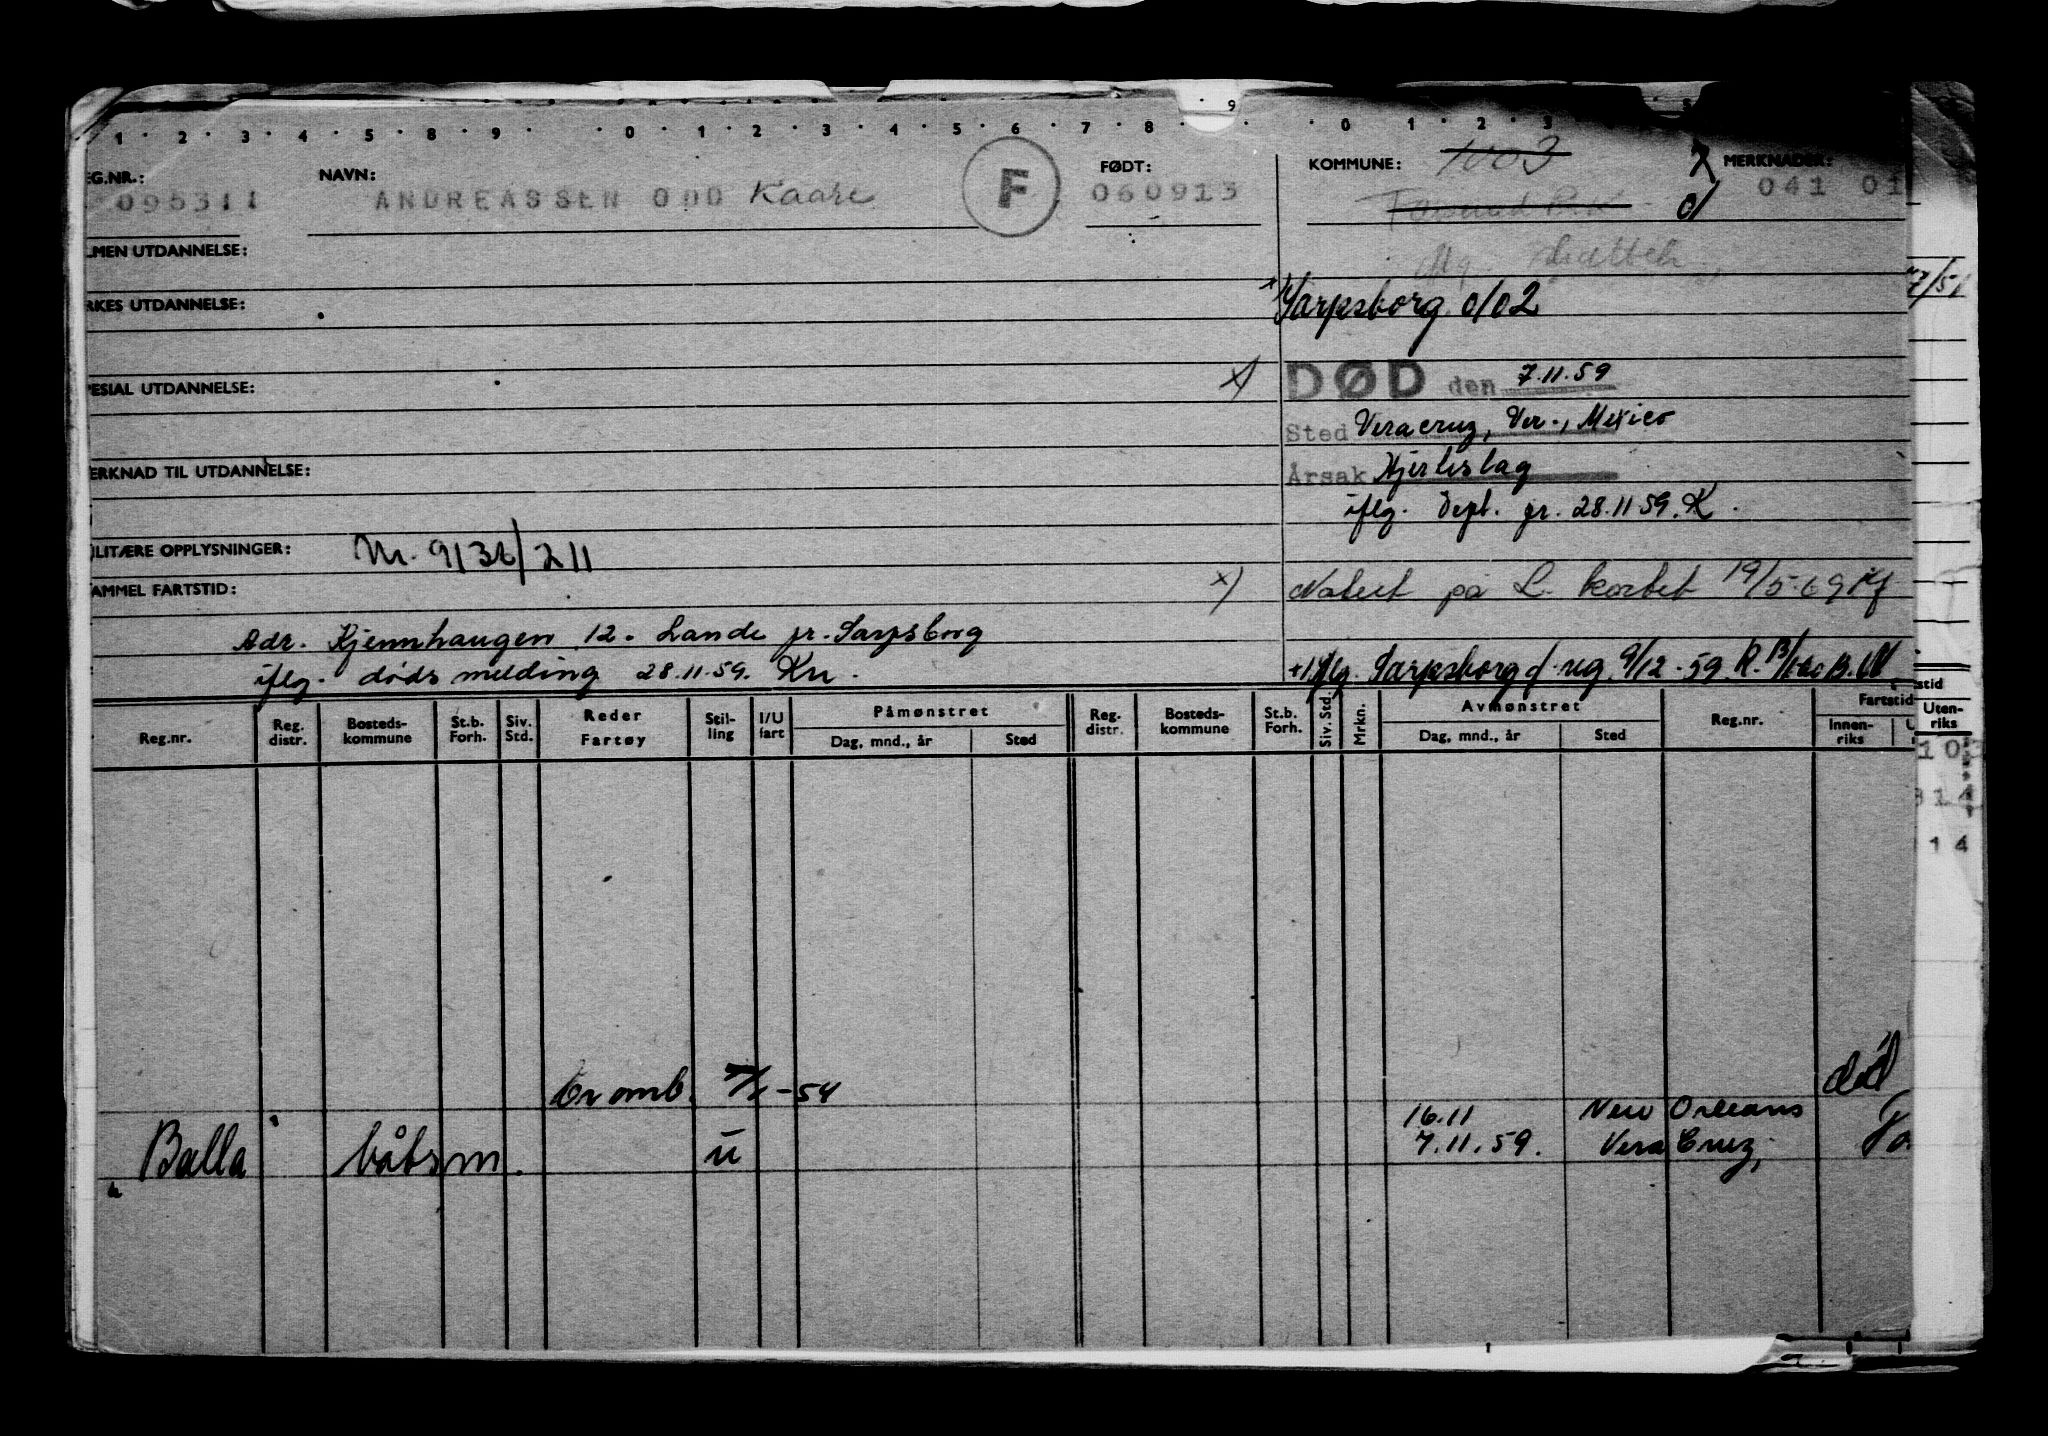 1 2 3 4 5 8 9 0 1 2 3 4 5 6 7 8 9 0 1 2 3
EG.NR.: NAVN: FØDT: KOMMUNE: 1003 MERKNADER:
095311 ANDREASSEN ODD Kaare F 060913 041 01
LMEN UTDANNELSE:
RKES UTDANNELSE:
Sarpsborg 0102
7/51
PESIAL UTDANNELSE:
x) DØD den 7.11.59
Sted Veracruz, Ver., Mexico
ERKNAD TIL UTDANNELSE:
Årsak Hjerteslag
iflg. Dept. gr. 28.11.59. K.
ILITÆRE OPPLYSNINGER: Nr. 9132/211
AMMEL FARTSTID:
x) Notert på L. kortet 19/5-69
Adr. Kjennhaugen 12. Lande pr. Sarpsborg
iflg. dødsmelding 28.11.59. Kn.
iflg. Sarpsborg f. reg. 9/12-59. K.
Reg.nr. Reg. distr. Bosteds- kommune St.b. Forh. Siv. Std. Reder Fartøy Stil- ling I/U fart Påmønstret Dag, mnd., år Sted Reg. distr. Bosteds- kommune St.b. Forh. Siv. Std. Mrkn. Avmønstret Dag, mnd., år Sted Reg.nr. Fartstid Innen- riks
stid Uten- riks
10
314
14
død
Cromb. -54
16.11 New Orleans
Balla båtsm. u 7.11.59. Vera Cruz,